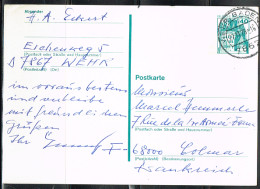 Absender:
H. A. Eckert
Eschenweg 5
(Straße und Hausnummer oder Postfach)
D 7867 WEHR
(Postleitzahl) (Ort)
im voraus bestens
und verbleibe
mit freundlichen
Grüßen
Ihr
Postkarte
Monsieur
Marcel Hemmerle
7 Rue de la
(Straße und Hausnummer oder Postfach)
F- 68000 Colmar
(Postleitzahl) (Bestimmungsort)
Frankreich